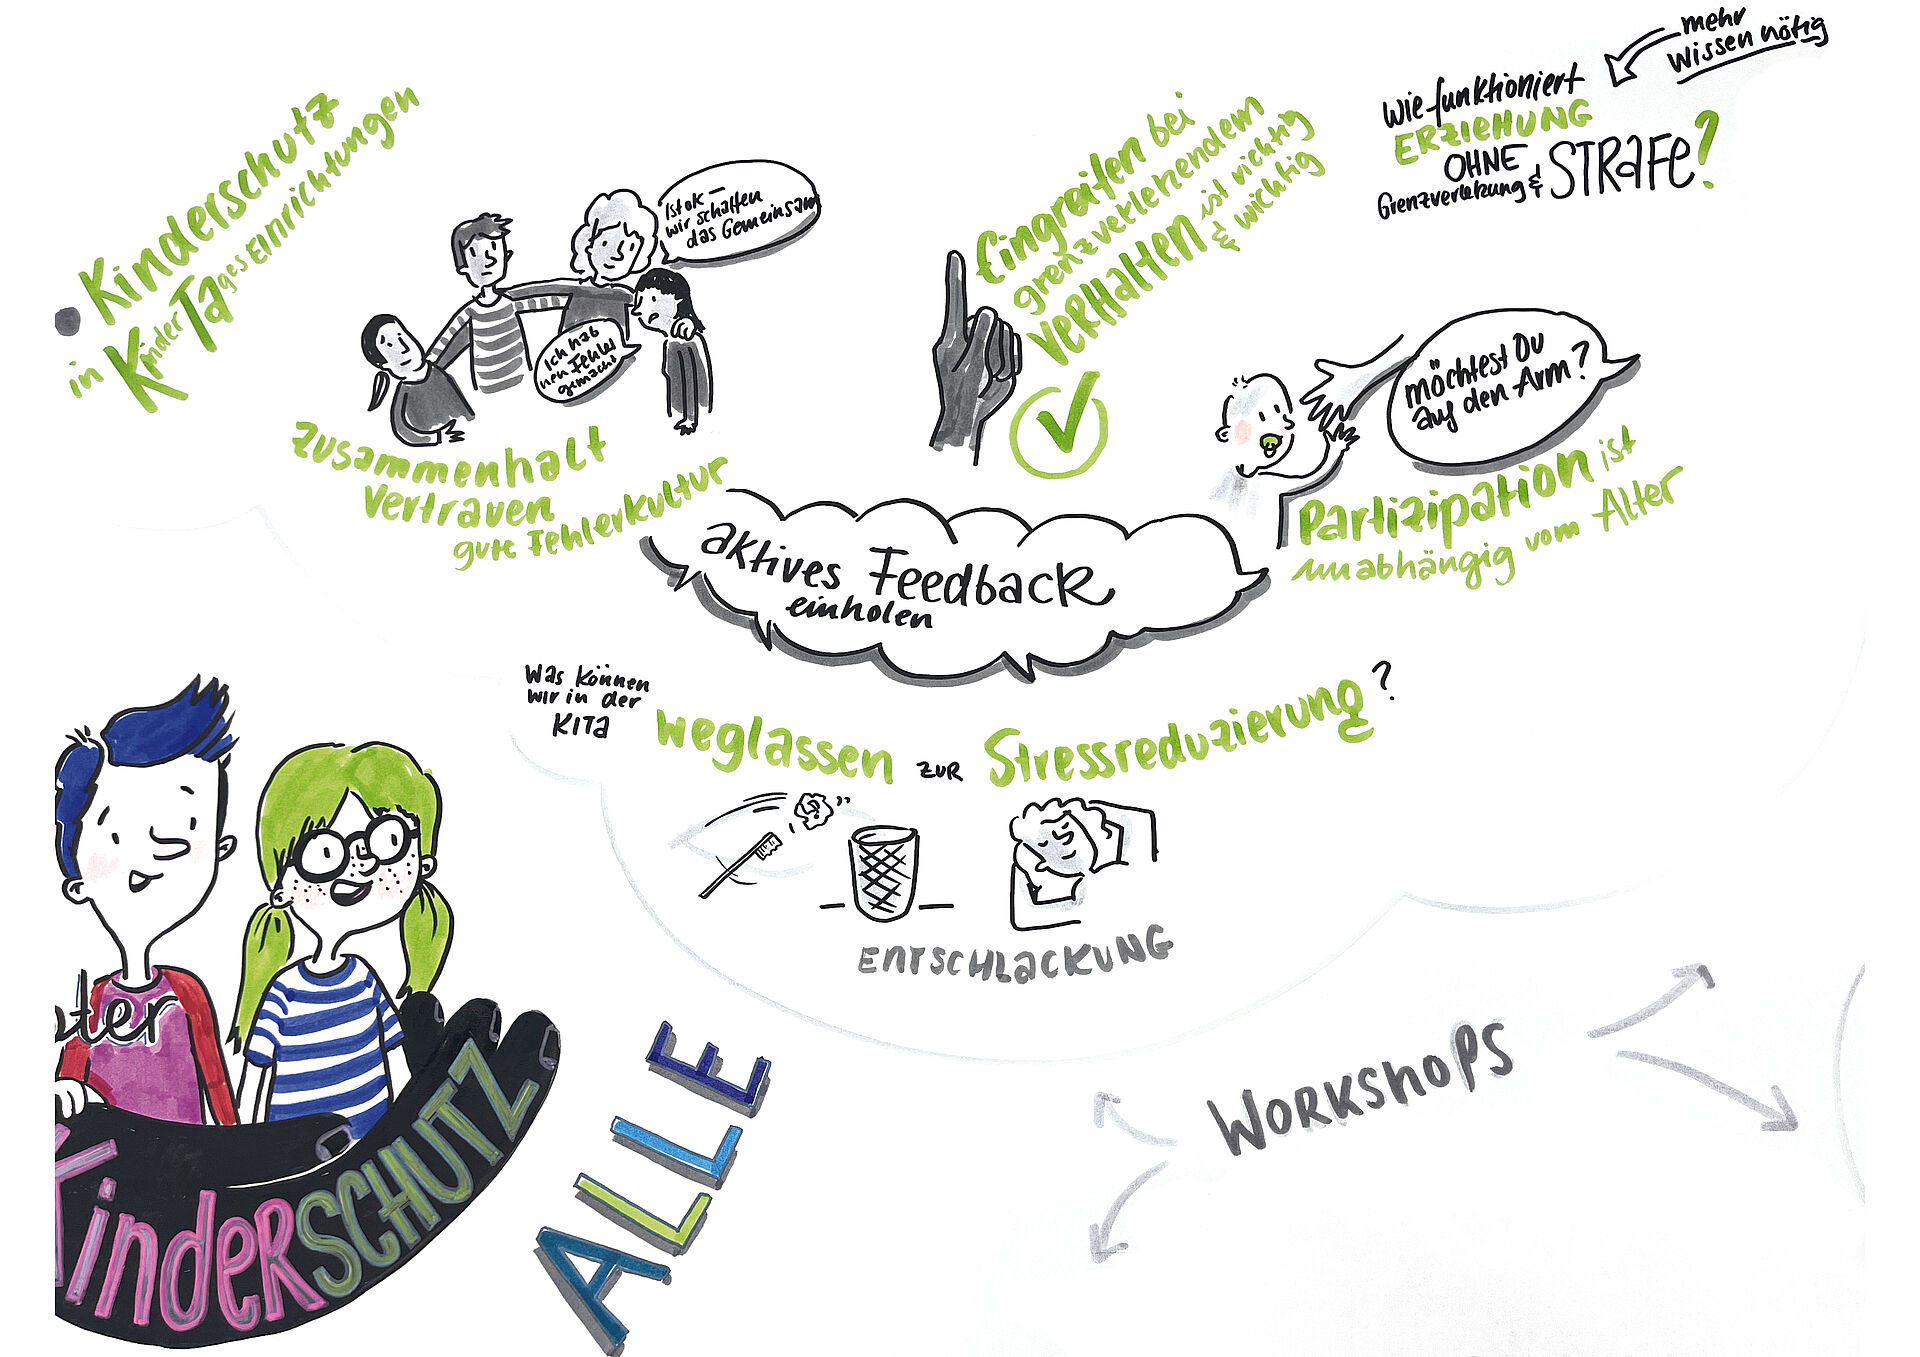 Kinderschutz
in KinderTageseinrichtungen
Ist ok –
wir schaffen
das Gemeinsam
Ich hab
nen Fehler
gemacht
Zusammenhalt
Vertrauen
gute Fehlerkultur
Eingreifen bei
grenzverletzendem
Verhalten ist richtig
& wichtig
mehr
Wissen nötig
Wie funktioniert
ERZIEHUNG
OHNE
Grenzverletzung & STRAFE?
möchtest Du
auf den Arm?
Partizipation ist
unabhängig vom Alter
aktives Feedback
einholen
Was können
wir in der
KITA
weglassen zur Stressreduzierung?
ENTSCHLACKUNG
KinderSCHUTZ
ALLE
WORKSHOPS